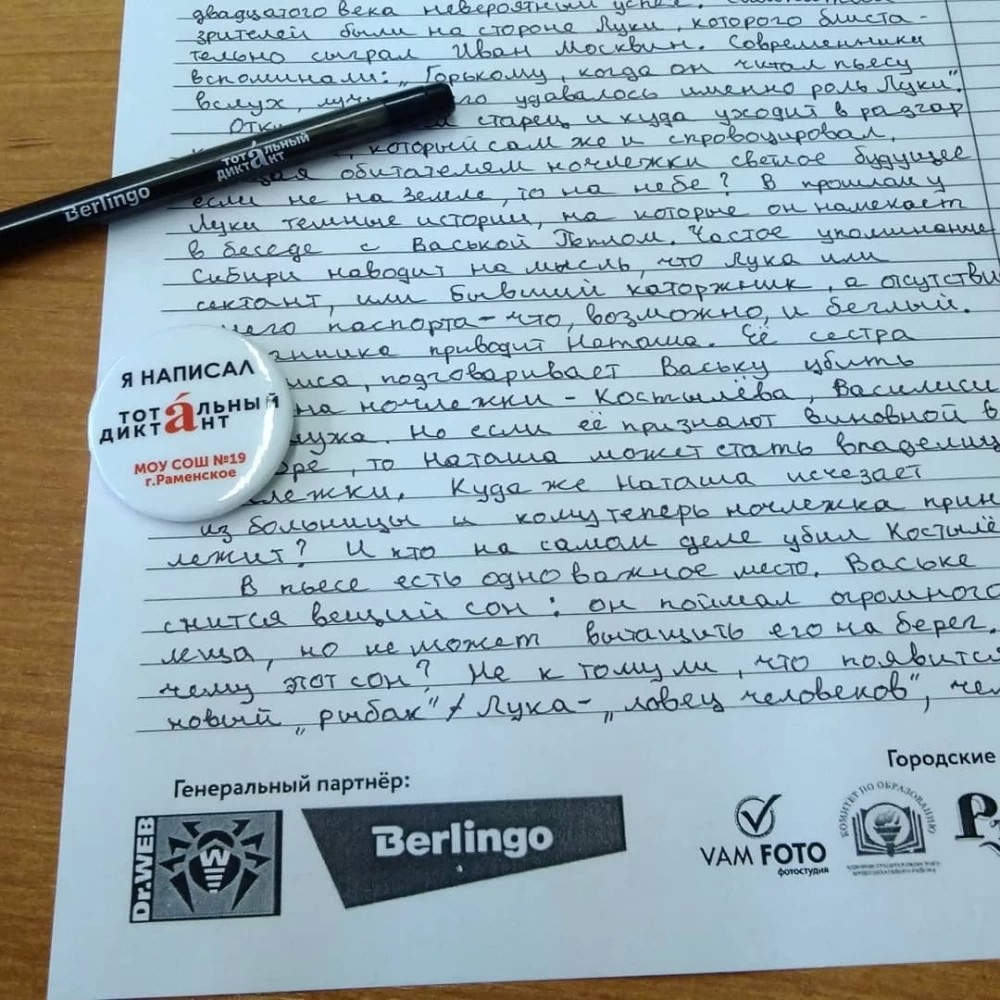 двадцатого века невероятный успех.
зрителей были на стороне Луки, которого блиста-
тельно сыграл Иван Москвин. Современники
вспоминали: „Горькому, когда он читал пьесу
вслух, удавалось именно роль Луки".
старец и куда уходит в разгар
который сам же и спровоцировал,
обитателям ночлежки светлое будущее
если не на Земле, то на небе? В прошлом у
Луки темные истории, на которые он намекает
в беседе с Васькой Пеплом. Частое упоминание
Сибири наводит на мысль, что Лука или
сектант, или бывший каторжник, а отсутстви
него паспорта – что, возможно, и беглый.
приводит Наташа. Её сестра
подговаривает Ваську убить
на ночлежки – Костылёва, Василисы
мужа. Но если её признают виновной в
то Наташа может стать владелиц
лежки. Куда же Наташа исчезает
из больницы и кому теперь ночлежка прин
лежит? И кто на самом деле убил Костылё
В пьесе есть одно важное место. Ваське
снится вещий сон: он поймал огромного
леща, но не может вытащить его на берег.
чему этот сон? Не к тому ли, что появится
новый „рыбак"? Лука – „ловец человеков", чел
Berlingo
тотальный
диктант
Я НАПИСАЛ
тотáльный
диктант
МОУ СОШ №19
г.Раменское
Генеральный партнёр:
Городские
Dr.WEB
Berlingo
VAM FOTO
фотостудия
КОМИТЕТ ПО ОБРАЗОВАНИЮ